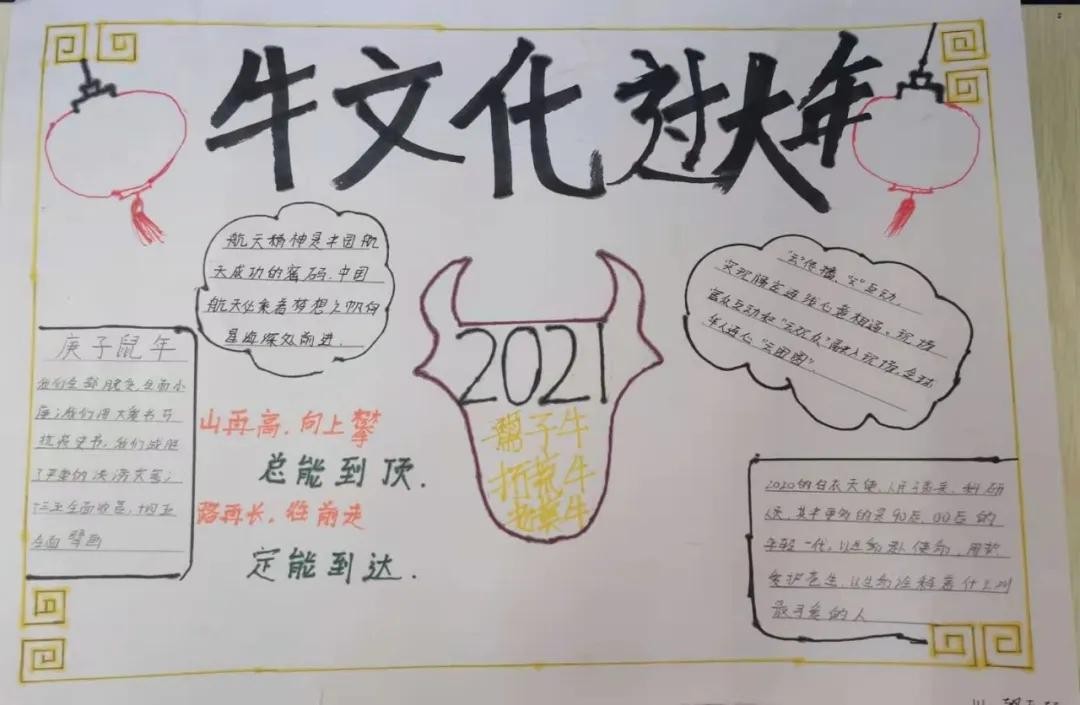 牛文化 过大年
航天精神是中国航
天成功的密码.中国
航天必乘着梦想之帆向
星海深处前进.
"云"传播、"云"互动.
实现隔空连线心意相通、现场
富众互动把"云观众"融入现场,全球
华人连心"云团圆".
庚子鼠年
我们全部脱贫,全面小
康;我们用大爱书写
抗疫史书,我们战胜
了严重的洪涝灾害;
十三五全面收官,十四五
全面擘画
山再高.向上攀
总能到顶.
路再长.往前走
定能到达.
2021
孺子牛
拓荒牛
老黄牛
2020的白衣天使、人民子弟兵、科研
人员,其中更多的是90后、00后的
年轻一代,以生命赴使命,用挚
爱护苍生,
最可爱的人